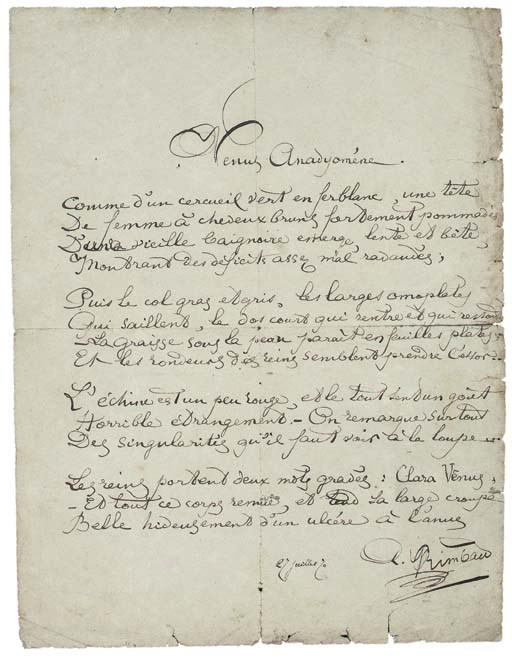 Vénus Anadyomène.
Comme d'un cercueil vert en ferblanc, une tête
De femme à cheveux bruns fortement pommadés
D'une vieille baignoire émerge, lente et bête,
Montrant des déficits assez mal radaudés;
Puis le col gras et gris, les larges omoplates
Qui saillent, le dos court qui rentre et qui ressort
La graisse sous la peau paraît en feuilles plates
Et les rondeurs des reins semblent prendre l'essor..
L'échine est un peu rouge, et le tout sent un goût
Horrible étrangement. – On remarque surtout
Des singularités qu'il faut voir à la loupe
Les reins portent deux mots gravés: Clara Vénus,
– Et tout ce corps remue, et tend sa large croupe
Belle hideusement d'un ulcère à l'anus
A. Rimbau
27 juillet 70